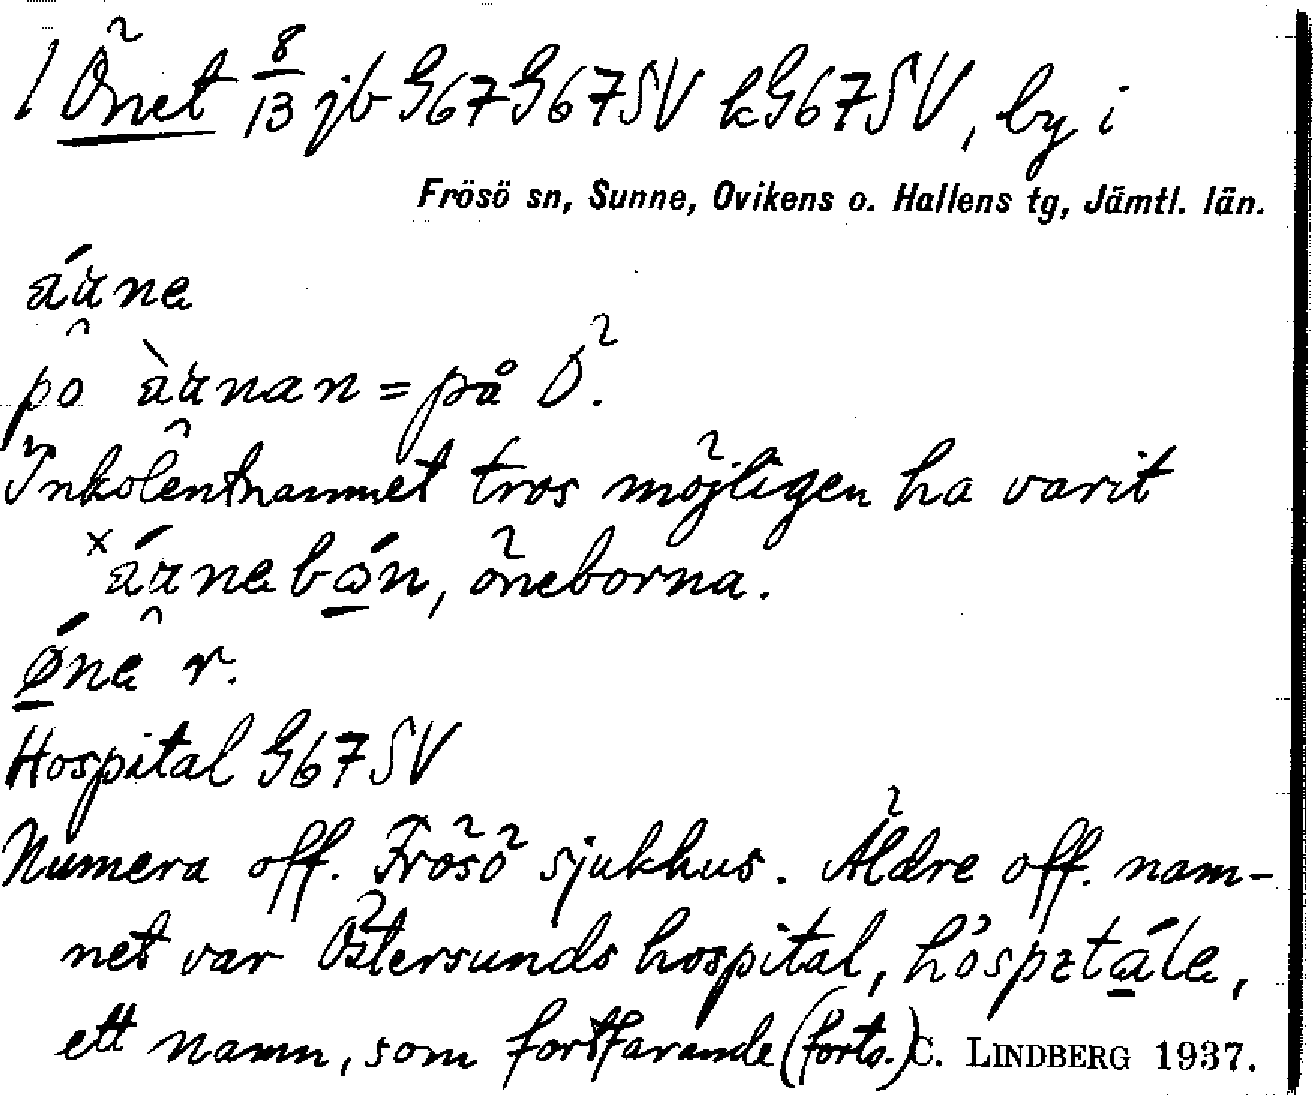 1 Önet 8/13 jb G67G67SV kG67SV, by i
Frösö sn, Sunne, Ovikens o. Hallens tg, Jämtl. län.
áune
po àunan = på Ö.
Inkolentnamnet tros möjligen ha varit
×áunebǿn, öneborna.
ǿne r.
Hospital G67SV
Numera off. Frösö sjukhus. Äldre off. nam-
net var Östersunds hospital, hòspɪtále,
ett namn, som fortfarande (forts.) C. LINDBERG 1937.